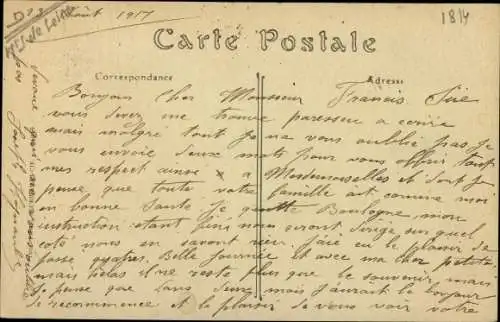 Août 1917
1814
Carte Postale
Correspondance
Adresse
Bonjour Cher Monsieur Francis
vous devez me trouver paresseux a ecrire
mais malgré tout je ne vous oublie pas je
vous envoie deux mots pour vous offrir tout
mes respect ainsi x a Mesdemoiselles et dont je
pense que toute votre famille ait comme moi
en bonne Santé Je quitte Boulogne, mon
instruction etant fini nous seront dirigé sur quel
coté nous en savont rien. J'aie eu le plaisir de
passé quatres Belle Journée et avec ma cher petite
mais helas il ne reste plus que le souvenir mais
je pense que dans deux mois j'aurait le bonjour
de recommence et le plaisir de vous voir votre